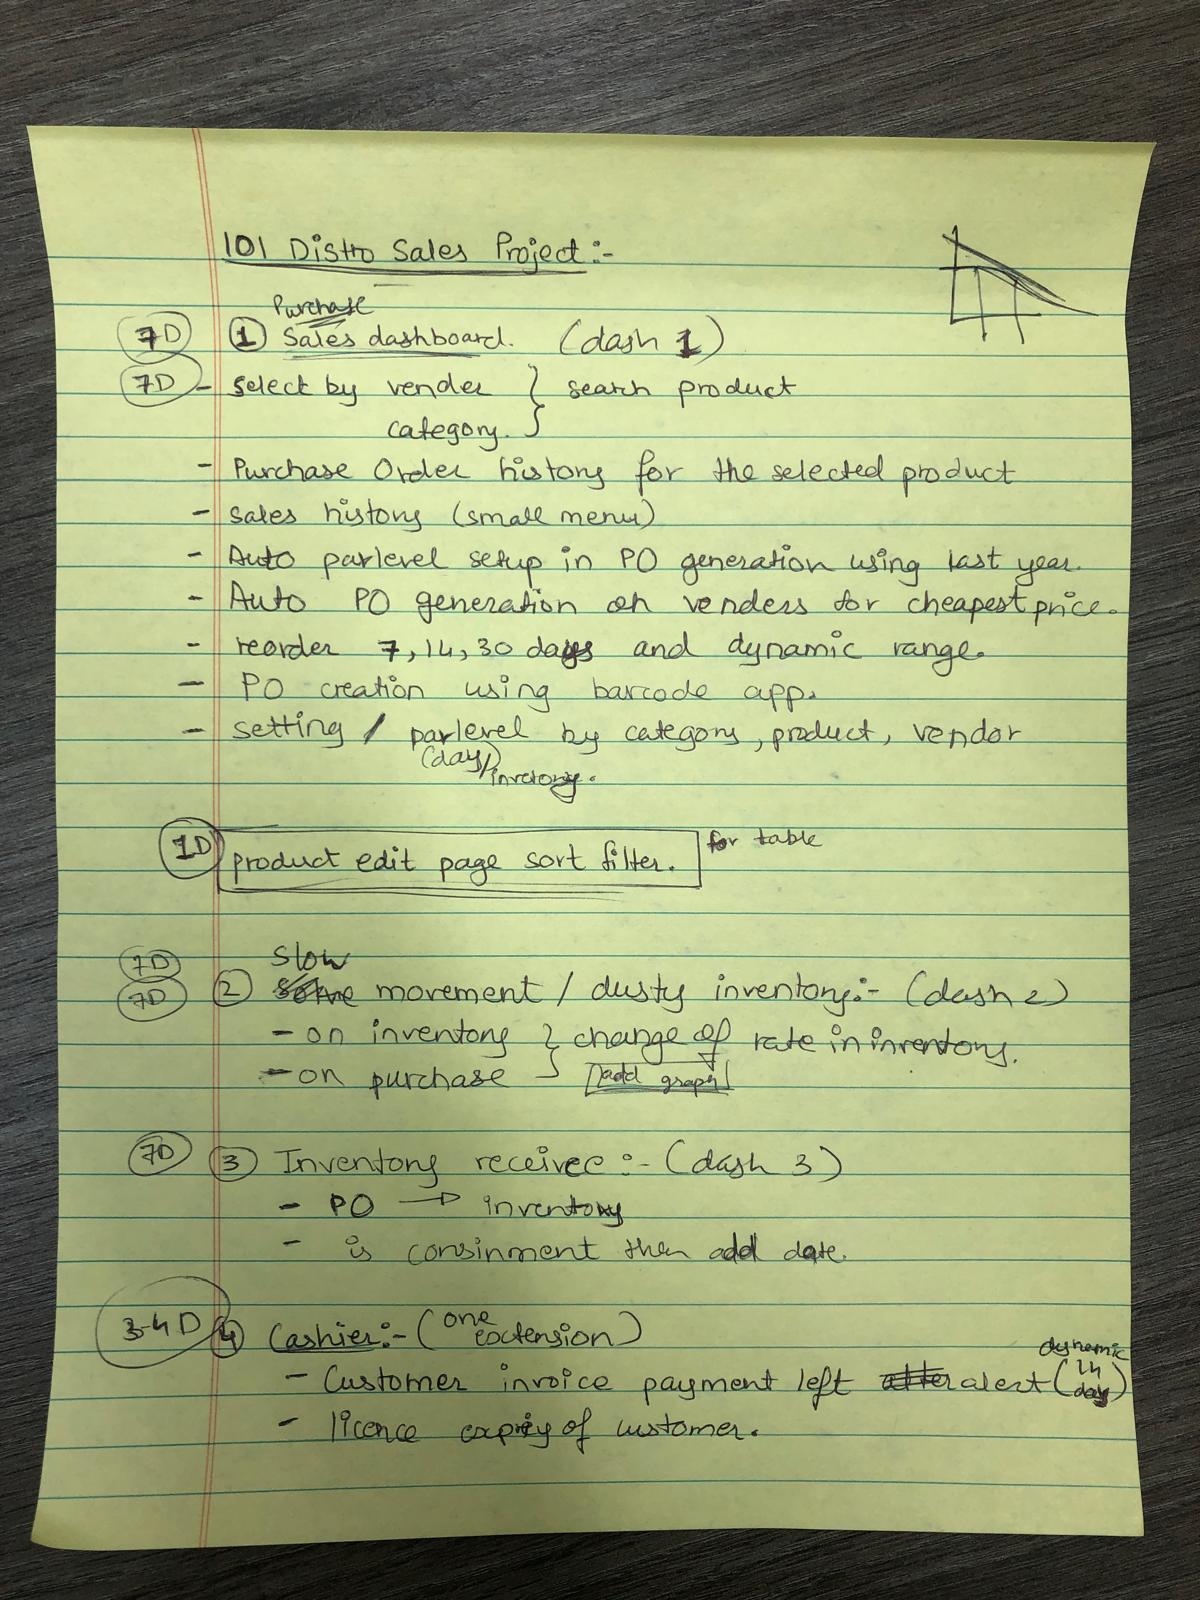 101 Distro Sales Project :-
Purchase
7D ① Sales dashboard. (dash 1)
7D - select by vender } search product
category.
- Purchase Order history for the selected product
- sales history (small menu)
- Auto parlevel setup in PO generation using last year.
- Auto PO generation on venders for cheapest price.
- reorder 7, 14, 30 days and dynamic range.
- PO creation using barcode app.
- setting / parlevel by category, product, vendor
(day)/invetory.
1D product edit page sort filter. for table
7D slow
7D ② movement / dusty inventory:- (dash 2)
- on inventory } change of rate in inventory.
- on purchase [add graph]
7D ③ Inventory receivee :- (dash 3)
- PO → inventory
- is consinment then add date.
3-4 D ④ Cashier:- (one extension)
- Customer invoice payment left alert (dynamic in day)
- licence expiry of customer.